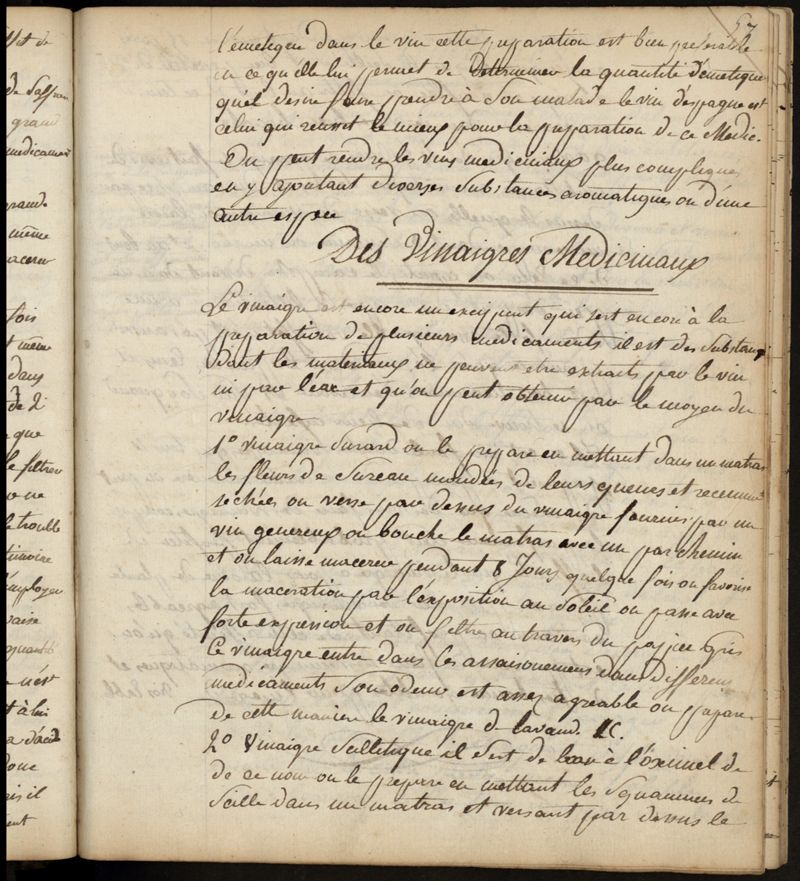 57
l'émetique dans le vin cette preparation est bien preferable
en ce qu'elle lui permet de Determiner la quantité d'émetique
qu'el desire faire prendre à son malade le vin d'espagne est
celui qui reussit le mieux pour la preparation de ce Medic.
On peut rendre les vins medicinaux plus compliqués
en y ajoutant diverses substances aromatiques ou d'une
autre espece
Des Vinaigres Medicinaux
Le vinaigre est encore un excipient qui sert encore à la
preparation de plusieurs medicaments il est des substanc
dont les materiaux ne peuvent etre extraits par le vin
ni par l'eau et qu'on peut obtenir par le moyen du
vinaigre
1º vinaigre surard on le prepare en mettant dans un matras
les fleurs de sureau mondées de leurs queues et recemm
sechées on verse par dessus du vinaigre fournies par un
vin genereux on bouche le matras avec un parchemin
et on laisse macerer pendant 8 Jours quelque fois on favorise
la maceration par l'exposition au soleil on passe avec
forte expression et on filtre au travers du papier gris
Ce vinaigre entre dans les assaisonemens dans differens
medicaments son odeur est assez agreable on prepare
de cette maniere le vinaigre de lavand. &c.
2º Vinaigre scillitique il sert de base à l'oximel de
de ce nom on le prepare en mettant les squammes de
Scille dans un matras et versant par dessus le
de Saffran
grand
medicament
grande
même
macerer
fois
et même
dans
de 2
que
le filtrer
ne
le trouble
employer
n'est
et à lui
donc
il